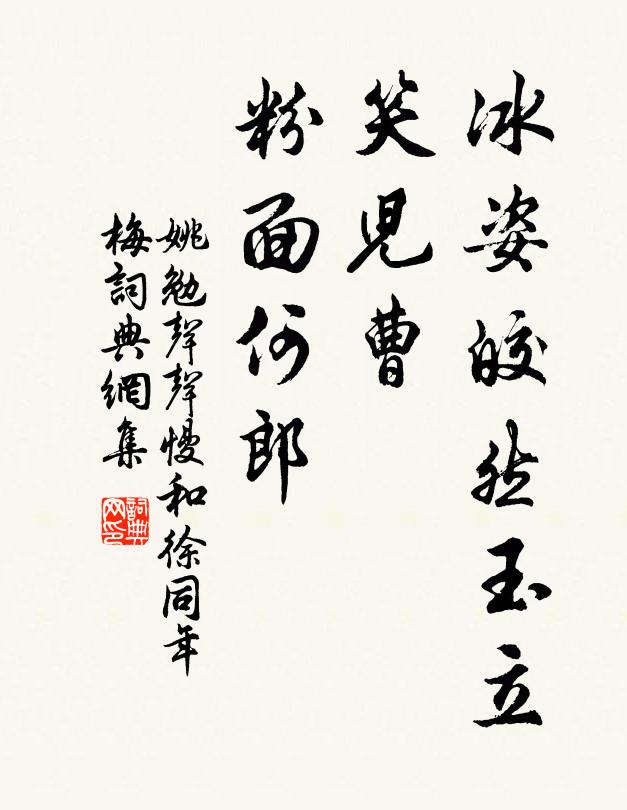 冰姿皎然玉立
笑兒曹
粉面何郎
姚勉聲聲慢和徐同年
梅詞典網集
詞典网印